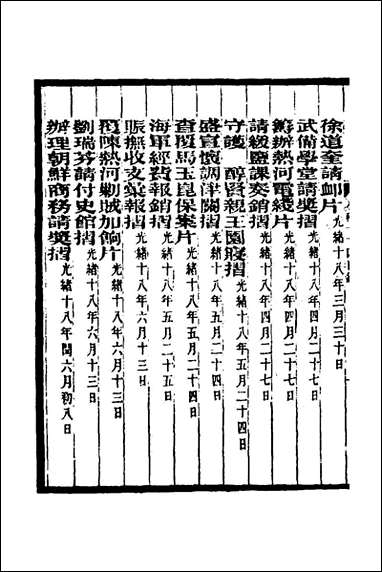 徐道奎請卹片光緒十八年三月三十日
武備學堂請獎摺光緒十八年四月二十七日
籌辦熱河電綫片光緒十八年四月二十七日
請緩鹽課奏銷摺光緒十八年四月二十七日
守護 醇賢親王園寢摺光緒十八年五月二十四
盛宣懷調津關摺光緒十八年五月二十四日
查覆馬玉崑保案片光緒十八年五月二十四
海軍經費報銷摺光緒十八年五月二十五日
賑撫收支彙報摺光緒十八年六月十三日
覆陳熱河剿賊加餉片光緒十八年六月十三日
劉瑞芬請付史館摺光緒十八年六月十三日
辦理朝鮮商務請獎摺光緒十八年閏六月初八日